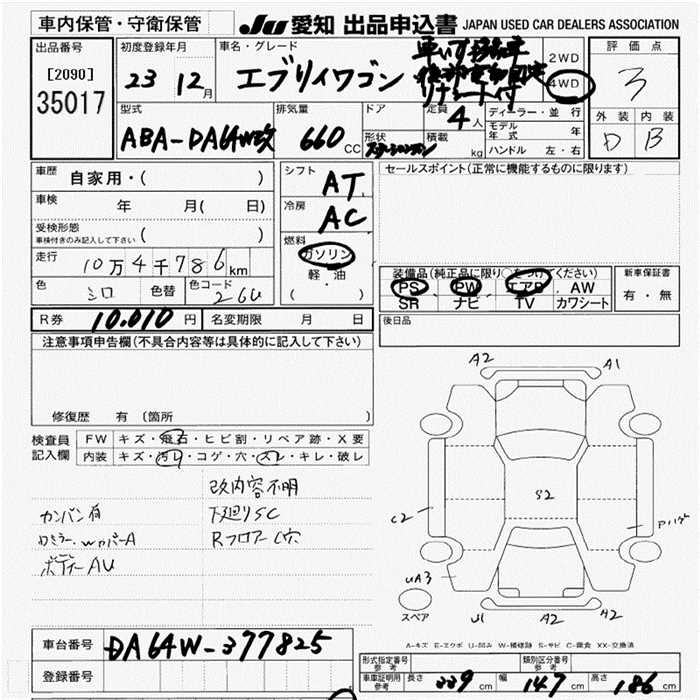 車内保管・守衛保管
JU 愛知 出品申込書 JAPAN USED CAR DEALERS ASSOCIATION
出品番号
[2090]
35017
初度登録年月
23 12月
車名・グレード
エブリイワゴン
車いす移動車
2WD
4WD
評価点
3
外装 内装
D B
型式
ABA-DA64W改
排気量
660 CC
ドア
形状
定員
4人
積載
kg
ディーラー・並行
モデル年式 年
ハンドル 左・右
車歴
自家用・( )
車検
年 月( 日)
受検形態
車検付きのみ記入して下さい ( )
走行
10万4千786km
色
シロ
色替
色コード
26U
シフト
AT
冷房
AC
燃料
ガソリン
軽・油
( )
セールスポイント(正常に機能するものに限ります)
装備品(純正品に限り○をつけてください)
PS PW エアB AW
SR ナビ TV カワシート
新車保証書
有・無
R券 10.010円 名変期限 月 日
後日品
注意事項申告欄(不具合内容等は具体的に記入して下さい)
修復歴 有 〔箇所
検査員記入欄
FW キズ・飛石・ヒビ割・リペア跡・X要
内装 キズ・汚レ・コゲ・穴・スレ・キレ・破レ
改内容不明
カンバン有
下廻りSC
Rフロアー穴
ボディーAU
A2
A1
S2
C2
UA3
U1
A2
A2
スペア
A-キズ E-エクボ U-凹み W-補修跡 S-サビ C-腐食 XX-交換済
車台番号
DA64W-377825
登録番号
形式指定番号
参考
類別区分番号
参考
車庫証明用
参考
長さ 339cm 幅 147cm 高さ 186cm